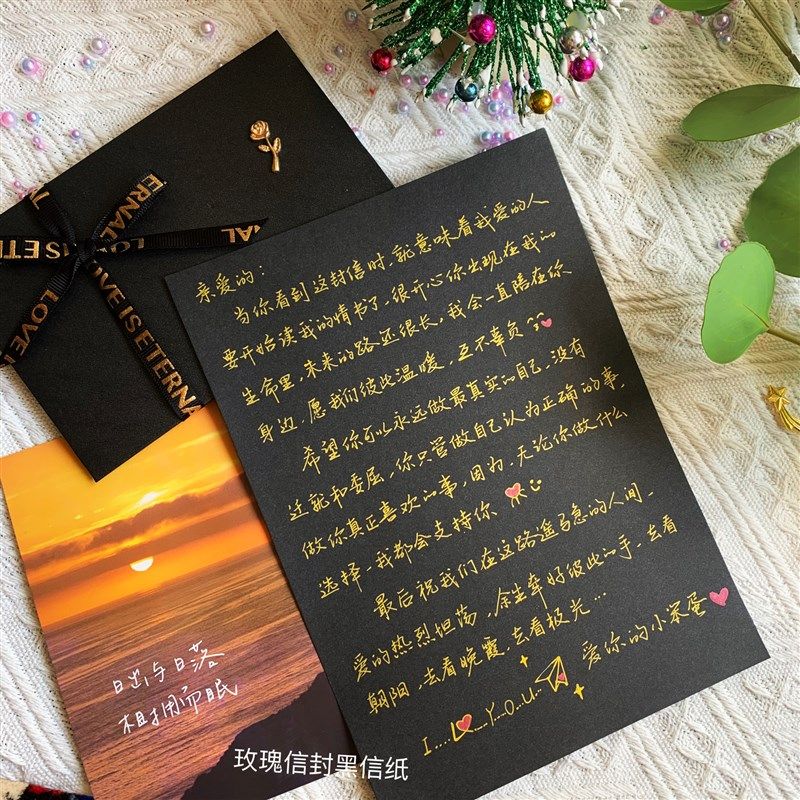 ERNAL
LOVE IS ETERNAL
亲爱的：
当你看到这封信时，就意味着我爱的人
要开始读我的情书了，很开心你出现在我的
生命里，未来的路还很长，我会一直陪在你
身边，愿我们彼此温暖，互不辜负
希望你可以永远做最真实的自己，没有
迁就和委屈，你只管做自己认为正确的事，
做你真正喜欢的事，因为，无论你做什么
选择，我都会支持你
最后祝我们在这路遥马急的人间，
爱的热烈坦荡，余生牵好彼此的手，去看
朝阳，去看晚霞，去看极光…
I....L......Y...O...U...
爱你的小笨蛋
日出与日落
相拥而眠
玫瑰信封黑信纸